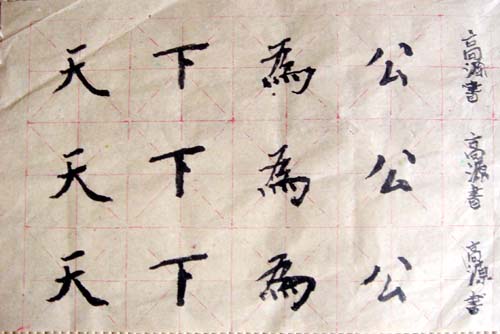 天下為公 高源書
天下為公 高源書
天下為公 高源書